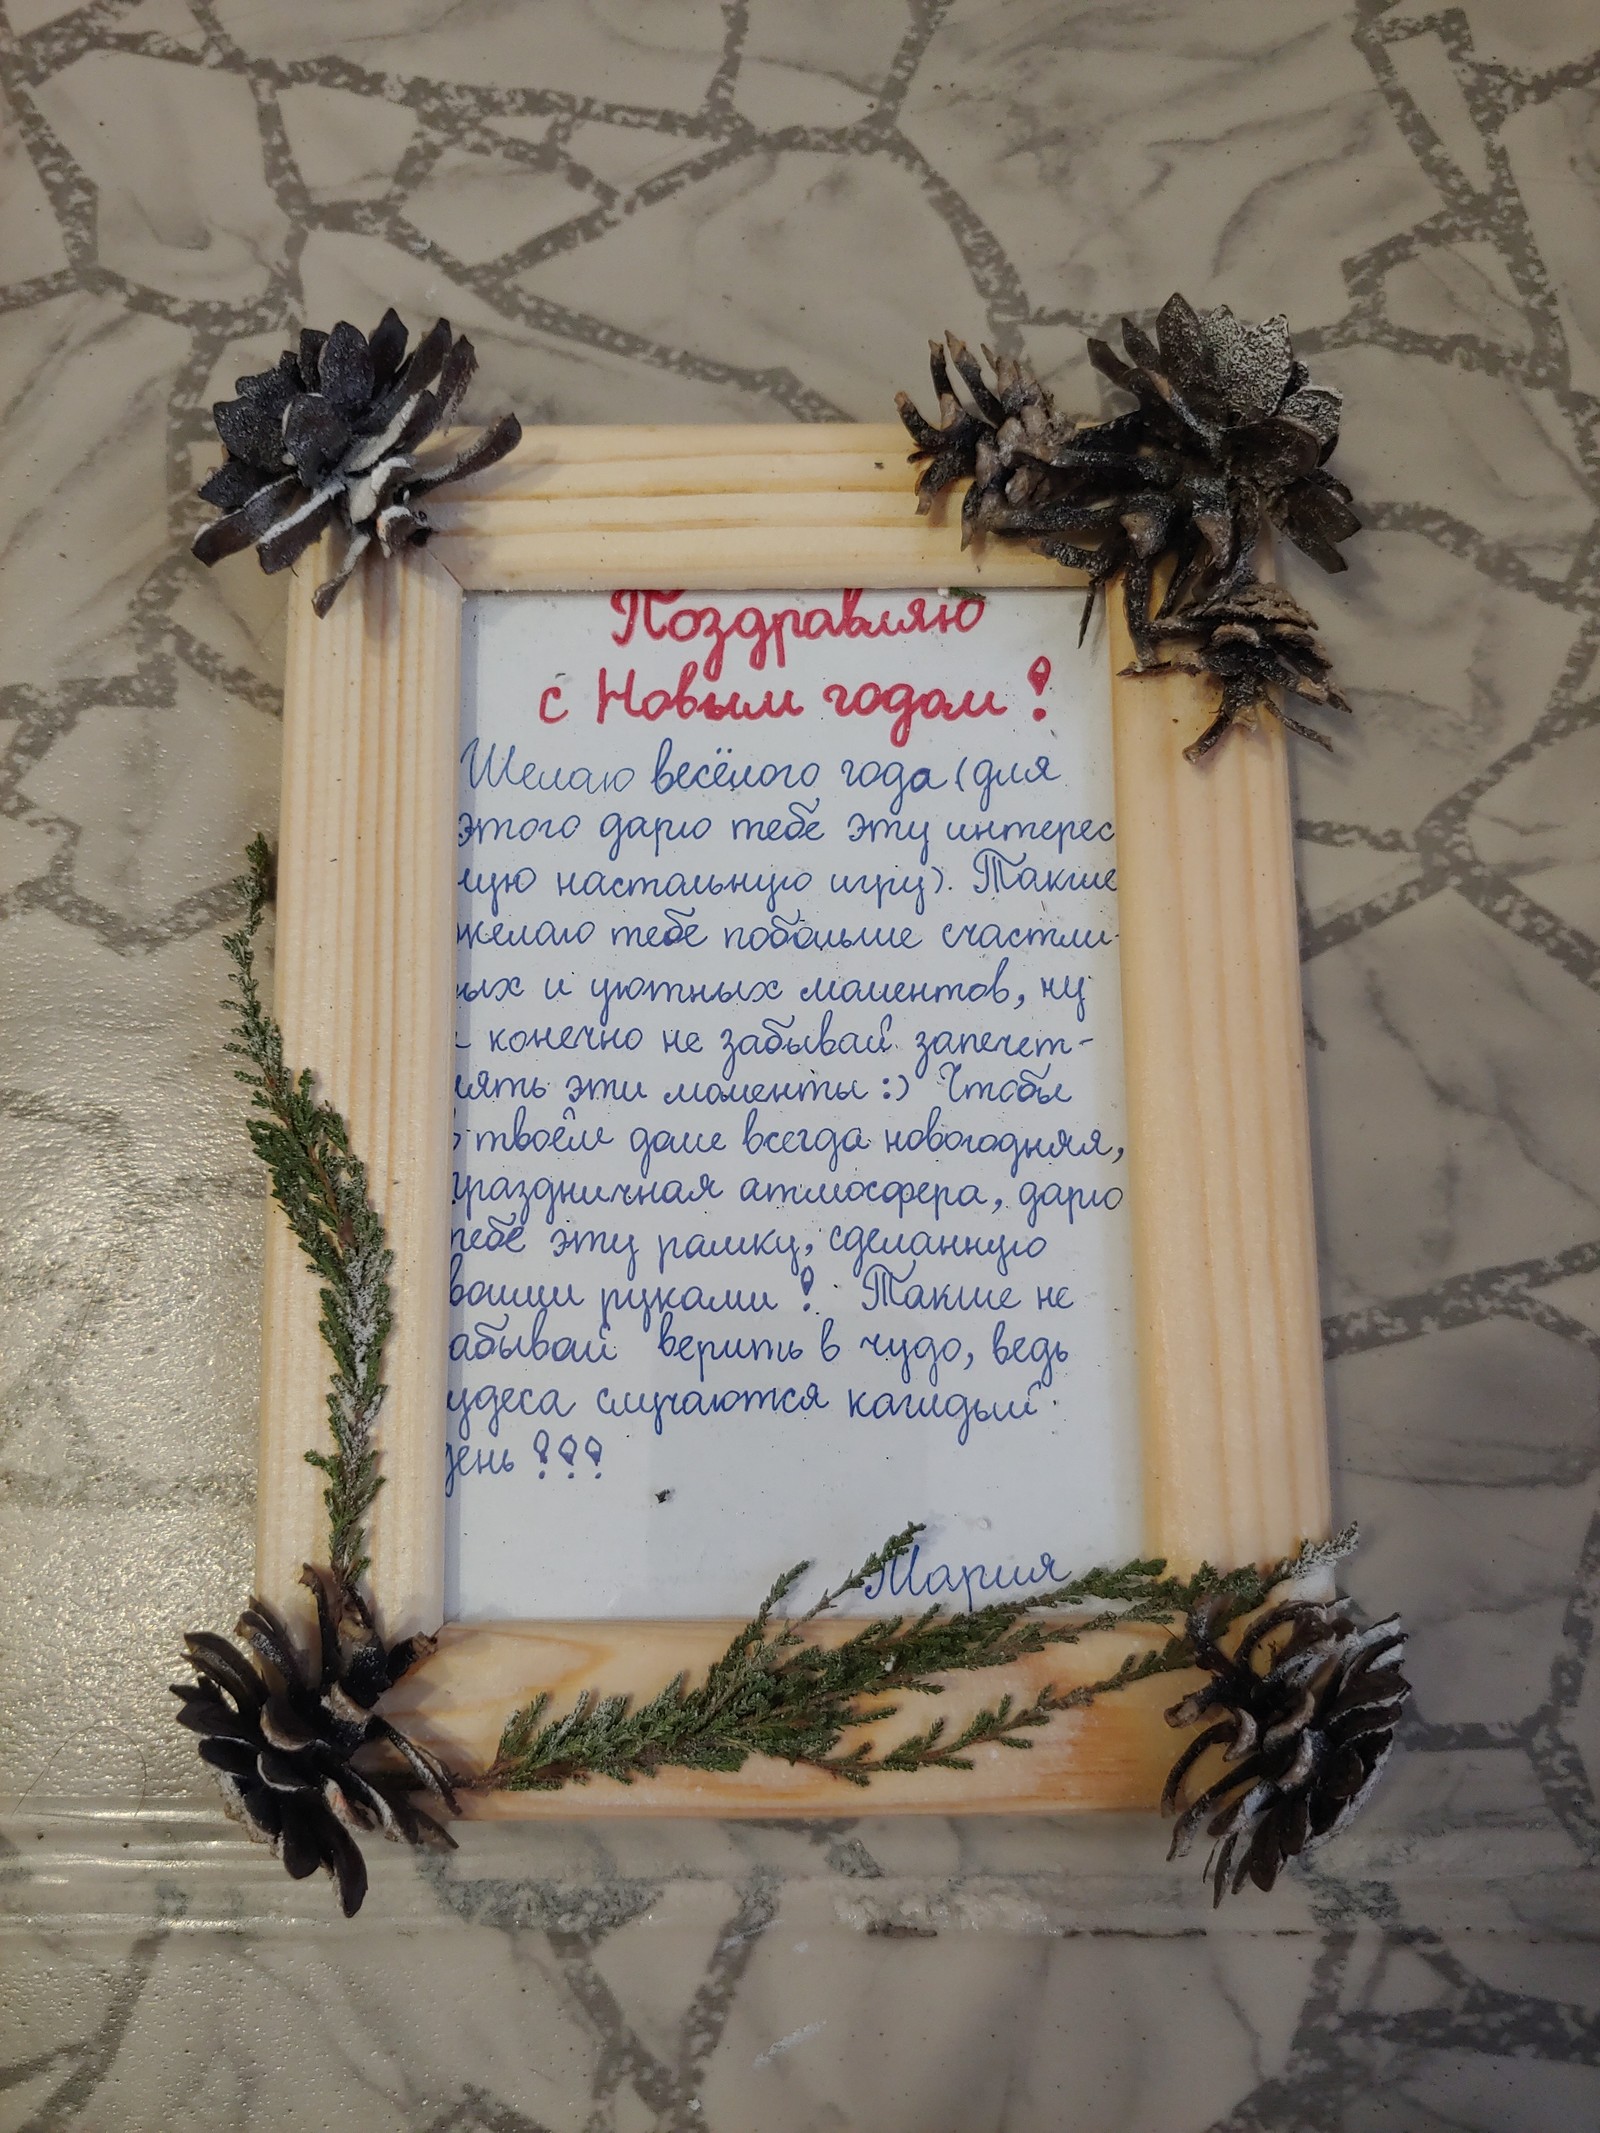 Поздравляю
с Новым годом!
Желаю весёлого года (для
этого дарю тебе эту интерес
ную настольную игру). Также
желаю тебе побольше счастли-
ных и уютных моментов, ну
и конечно не забывай запечет-
лять эти моменты :) Чтобы
в твоём доме всегда новогодняя,
праздничная атмосфера, дарю
тебе эту рамку, сделанную
воими руками! Также не
абывай верить в чудо, ведь
удеса случаются каждый
день!!!
Мария